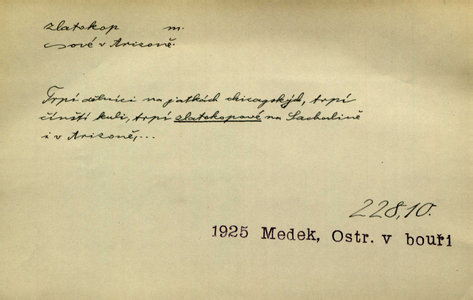 zlatokop m.
-ové v Arizoně.
Trpí dělníci na jatkách chicagských, trpí
čínští kuli, trpí zlatokopové na Sachalině
i v Arizoně,...
228,10.
1925 Medek, Ostr. v bouři